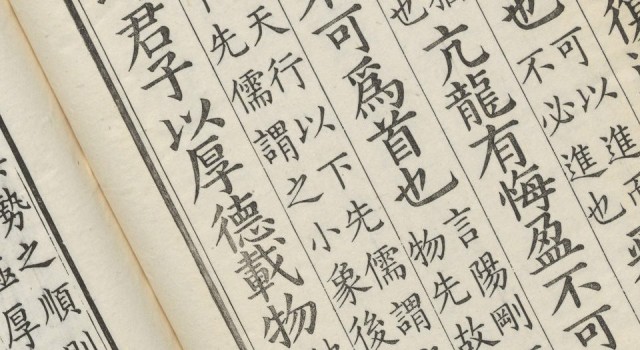 也
可以進
不必進也
也
亢龍有悔盈不可
不可爲首也
言陽剛
物先故
天行以下先儒謂
先儒謂之小象後
君子以厚德載物
之順則
勢
厚